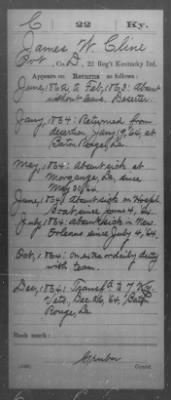 C 22 Ky.
James W. Cline
Pvt, Co. D, 22 Reg't Kentucky Inf.
Appears on Returns as follows:
June, 1862 to Feb, 1863: Absent
without leave. Deserter
Jany, 1864: Returned from
desertion Jany 19, 64, at
Baton Rouge, La.
May, 1864: Absent sick at
Morganza, La., since
May 30/64.
June, 1864: Absent sick on Hospl
Boat since June 4, 64
July 1864: Absent sick in New
Orleans since July 4, 64.
Oct, 1864: On extra or daily duty
with team.
Dec, 1864: Transf'd to 7 Ky.
Vets, Dec 26, 64, Baton
Rouge, La.
Book mark:
Gruber
Copyist.